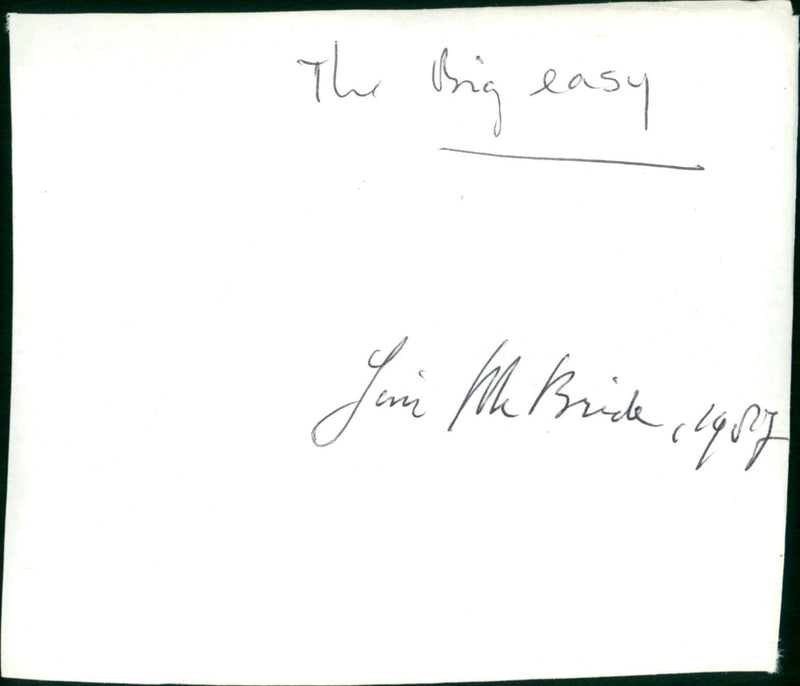 The Big easy
Jim McBride, 1987